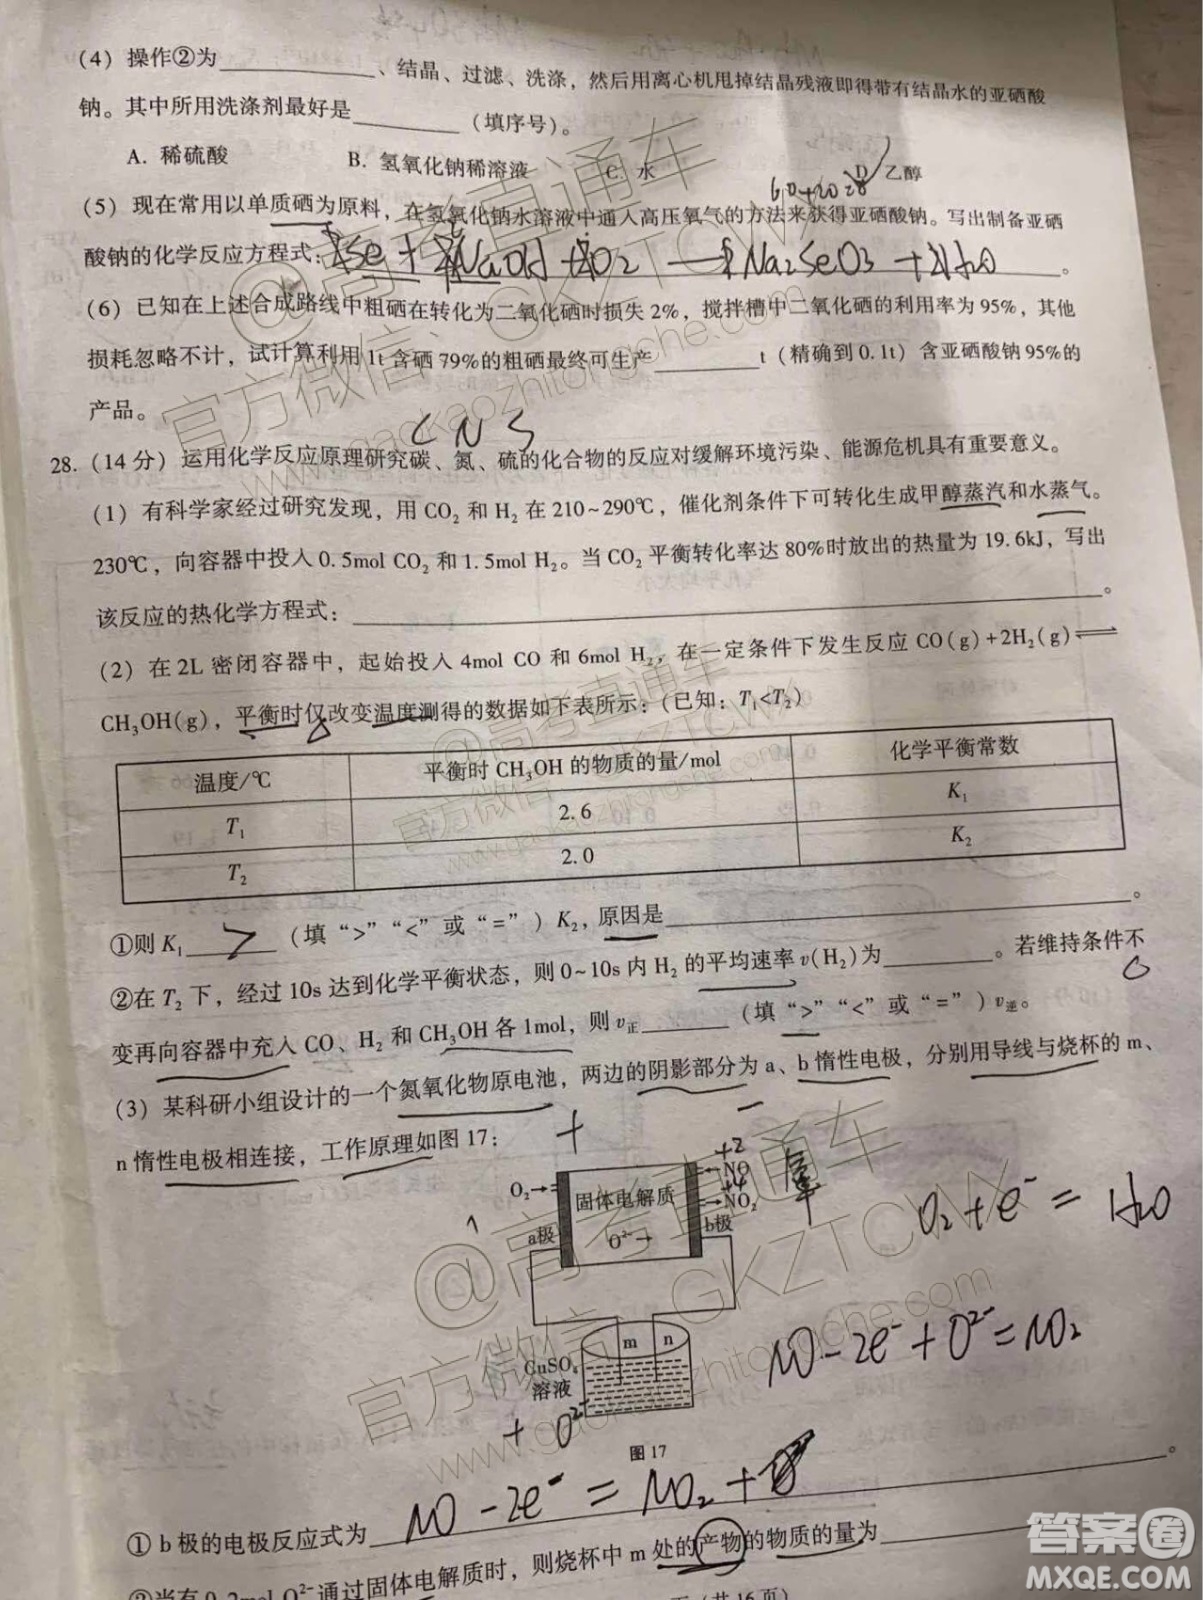 (4) 操作②为____________、结晶、过滤、洗涤，然后用离心机甩掉结晶残液即得带有结晶水的亚硒酸
钠。其中所用洗涤剂最好是________（填序号）。
A. 稀硫酸 B. 氢氧化钠稀溶液 C. 水 D 乙醇
(5) 现在常用以单质硒为原料，在氢氧化钠水溶液中通入高压氧气的方法来获得亚硒酸钠。写出制备亚硒
酸钠的化学反应方程式：Se + 2NaOH + O2 — Na2SeO3 + H2O。
(6) 已知在上述合成路线中粗硒在转化为二氧化硒时损失2%，搅拌槽中二氧化硒的利用率为95%，其他
损耗忽略不计，试计算利用1t含硒79%的粗硒最终可生产________t（精确到0.1t）含亚硒酸钠95%的
产品。
C N S
28.（14分）运用化学反应原理研究碳、氮、硫的化合物的反应对缓解环境污染、能源危机具有重要意义。
(1) 有科学家经过研究发现，用CO₂和H₂在210~290℃，催化剂条件下可转化生成甲醇蒸汽和水蒸气。
230℃，向容器中投入0.5mol CO₂和1.5mol H₂。当CO₂平衡转化率达80%时放出的热量为19.6kJ，写出
该反应的热化学方程式：________________。
(2) 在2L密闭容器中，起始投入4mol CO和6mol H₂，在一定条件下发生反应CO(g)+2H₂(g)⇌
CH₃OH(g)，平衡时仅改变温度测得的数据如下表所示：（已知：T₁<T₂）
温度/℃ 平衡时CH₃OH的物质的量/mol 化学平衡常数
T₁ 2.6 K₁
T₂ 2.0 K₂
①则K₁ > （填“>”“<”或“=”）K₂，原因是________________。
②在T₂下，经过10s达到化学平衡状态，则0~10s内H₂的平均速率v(H₂)为________。若维持条件不
变再向容器中充入CO、H₂和CH₃OH各1mol，则v正________（填“>”“<”或“=”）v逆。
(3) 某科研小组设计的一个氮氧化物原电池，两边的阴影部分为a、b惰性电极，分别用导线与烧杯的m、
n惰性电极相连接，工作原理如图17：
+ −
O₂→ 固体电解质 O²⁻→ ←NO →NO₂
+2 +4
a极 b极
O2 + e⁻ = H2O
m n
CuSO₄
溶液
NO − 2e⁻ + O²⁻ = NO2
+ O²⁻
图17
①b极的电极反应式为 NO − 2e⁻ = NO2 + 。
②当有0.2mol O²⁻通过固体电解质时，则烧杯中m处的产物的物质的量为________
（共16页）
@高考直通车
官方微信：GKZTCWX
www.gaokaozhitongche.com
答案圈
MXQE.COM